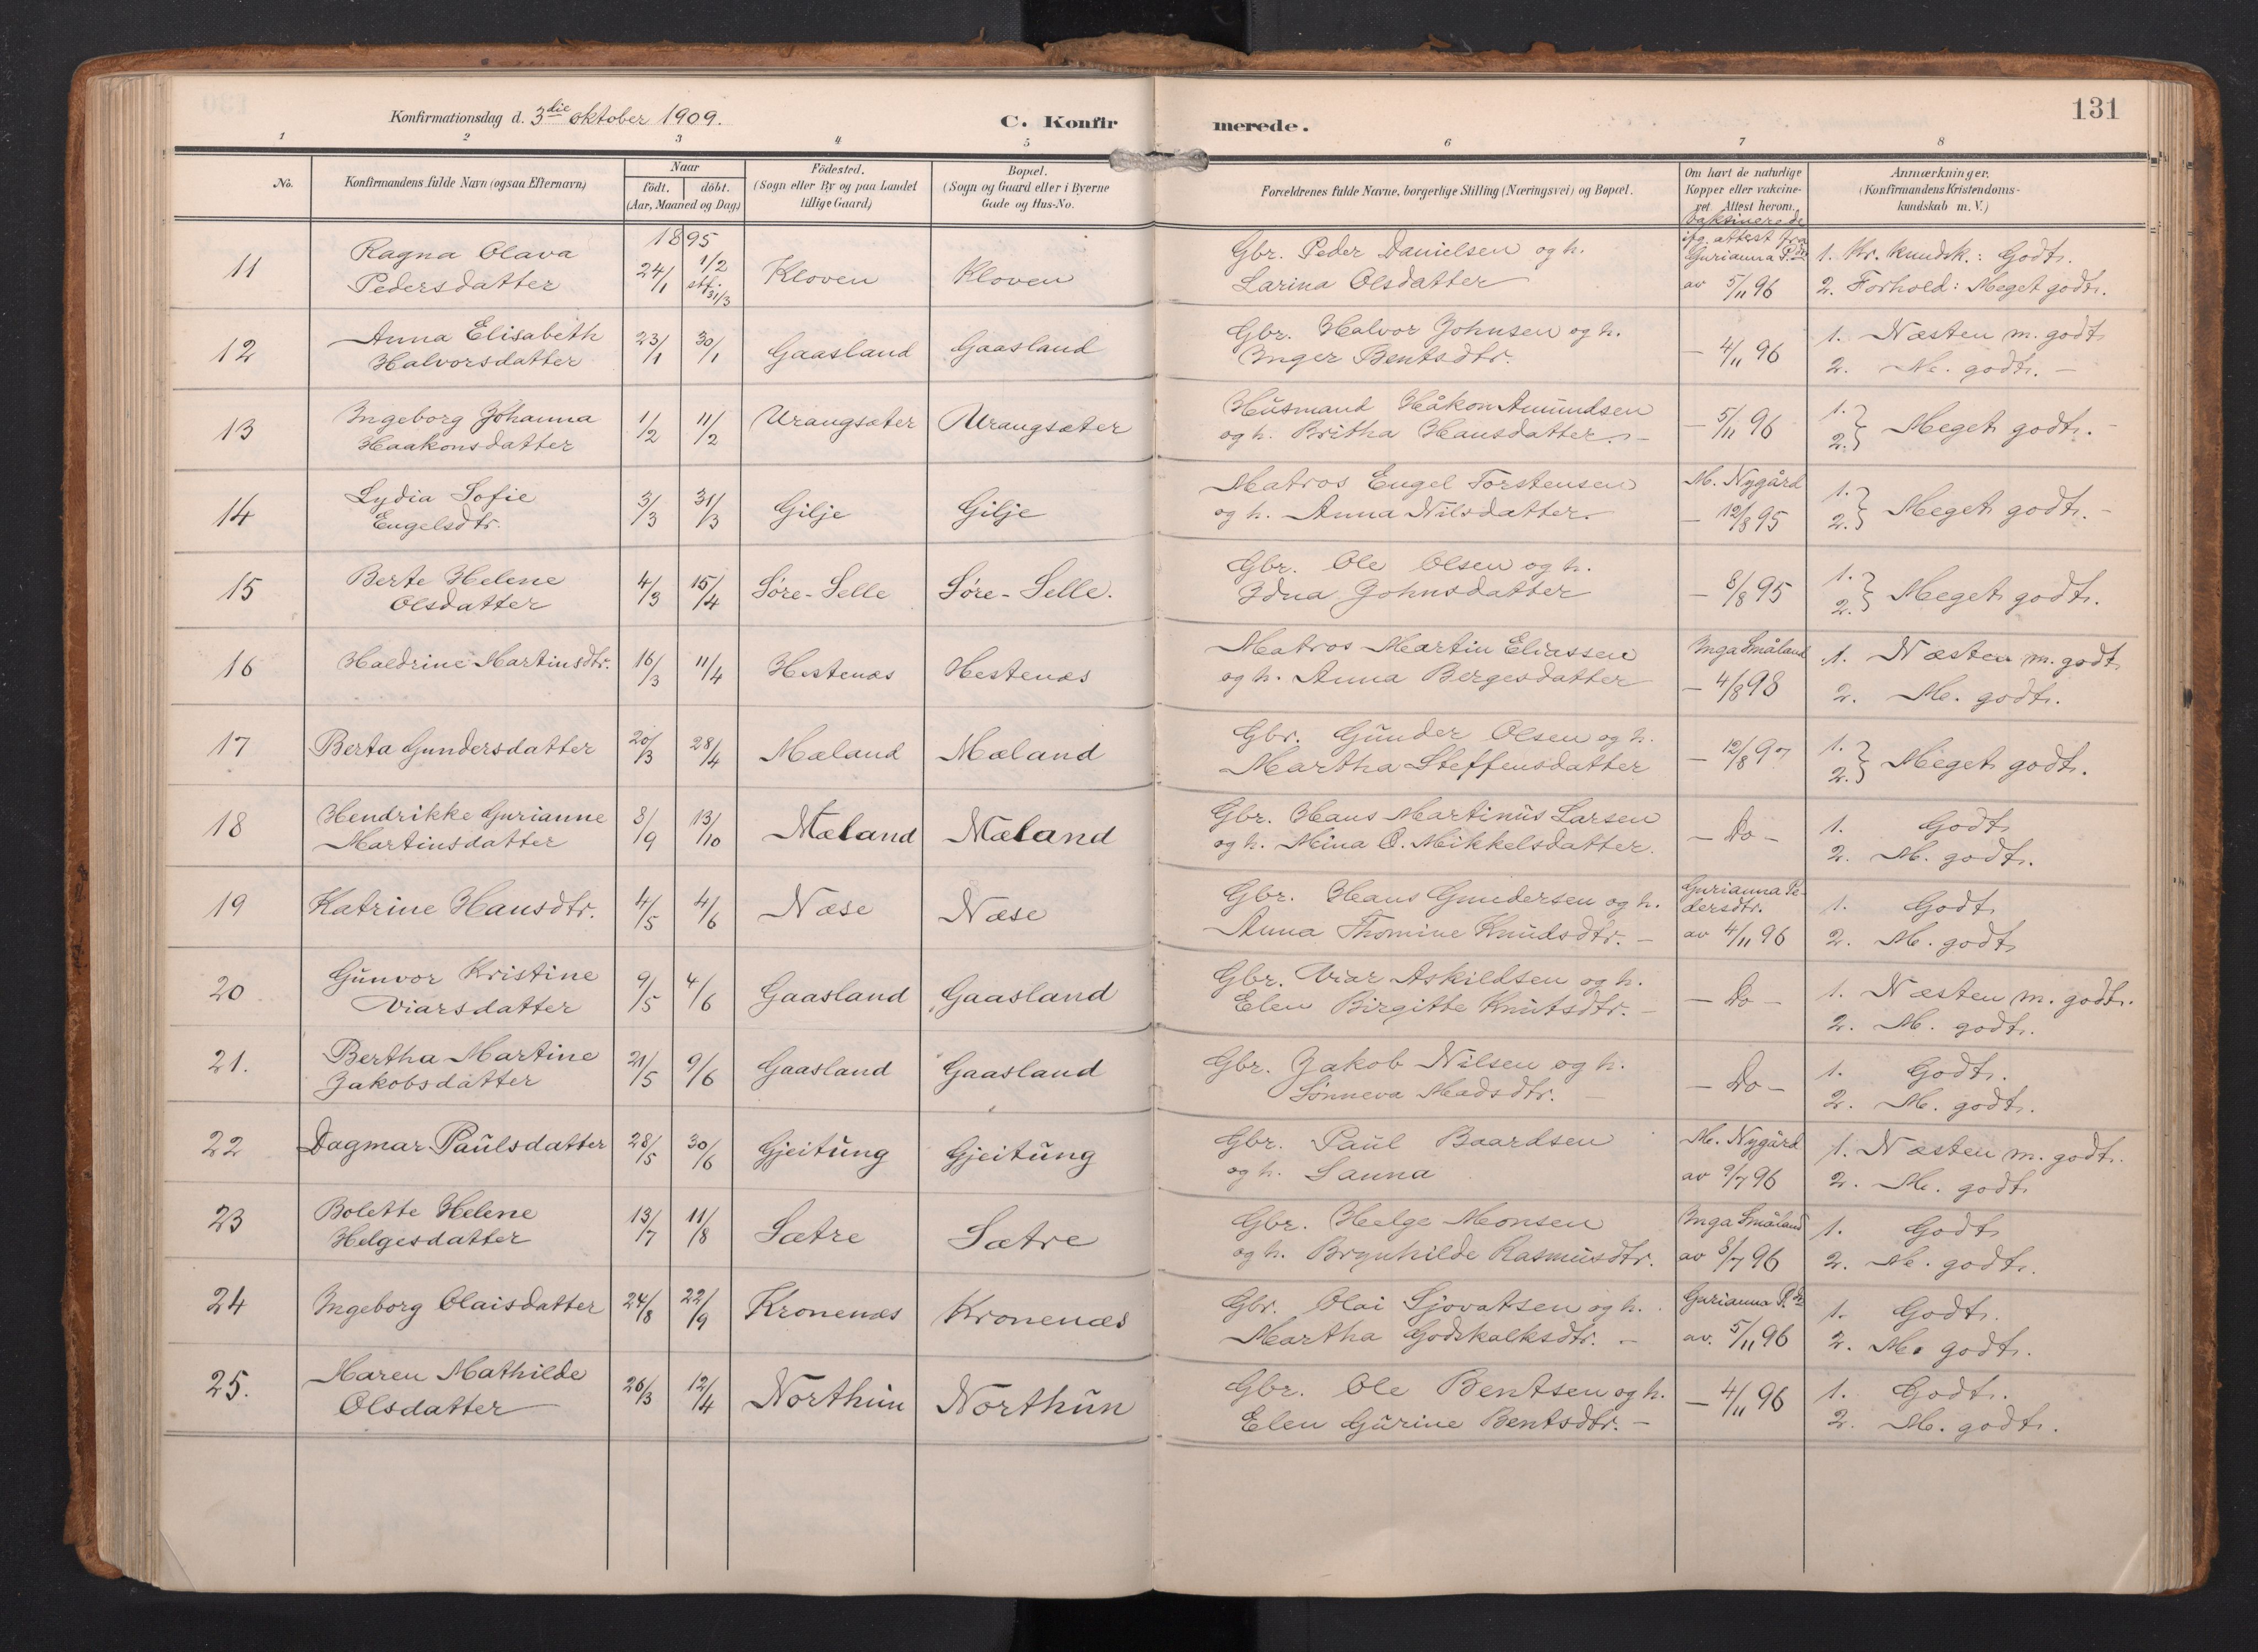 131
Konfirmationsdag d. 3die oktober 1909. C. Konfir merede.
1 2 3 4 5 6 7 8
No. Konfirmandens fulde Navn (ogsaa Efternavn) Naar født. døbt. (Aar, Maaned og Dag) Fødested. (Sogn eller By og paa Landet tillige Gaard) Bopæl. (Sogn og Gaard eller i Byerne Gade og Hus-No. Forældrenes fulde Navne, borgerlige Stilling (Næringsvei) og Bopæl. Om havt de naturlige Kopper eller vakcineret. Attest herom. Anmærkninger. (Konfirmandens Kristendomskundskab m. V.)
1895 Vaksinerede ifg. attest fra
11 Ragna Olava 24/1 1/2 Kloven Kloven Gbr. Peder Danielsen og h. Gurianna P.dtr 1. Kr. kundsk.: Godt.
Pedersdatter stf. 31/3 Larina Olsdatter av 5/11 96 2. Forhold: Meget godt.
12 Anna Elisabeth 23/1 30/1 Gaasland Gaasland Gbr. Halvor Johnsen og h. — 4/11 96 1. Næsten m. godt
Halvorsdatter Inger Bentsdtr. 2. M. godt. —
13 Ingeborg Johanna 1/2 11/2 Urangsæter Urangsæter Husmand Håkon Amundsen — 5/11 96 1. 2. } Meget godt. -
Haakonsdatter og h. Britha Hansdatter. -
14 Lydia Sofie 3/3 31/3 Gilje Gilje Matros Engel Torstensen M. Nygård 1. 2. } Meget godt. -
Engelsdtr. og h. Anna Nilsdatter. — 12/8 95
15 Berte Helene 4/3 15/4 Søre-Selle Søre-Selle. Gbr. Ole Olsen og h. — 8/8 95 1. 2. } Meget godt.
Olsdatter Idna Johnsdatter
16 Haldrine Martinsdtr. 16/3 11/4 Hestenæs Hestenæs Matros Martin Eliassen Inga Småland 1. Næsten m. godt
og h. Anna Bergesdatter — 4/8 98 2. M. godt.
17 Berta Gundersdatter 20/3 28/4 Mæland Mæland Gbr. Gunder Olsen og h. — 12/8 97 1. 2. } Meget godt.
Martha Steffensdatter
18 Hendrikke Gurianne 8/9 13/10 Mæland Mæland Gbr. Hans Martinus Larsen — Do — 1. Godt
Martinsdatter og h. Mina O. Mikkelsdatter. 2. M. godt.
19 Katrine Hansdtr. 4/5 4/6 Næse Næse Gbr. Hans Gundersen og h. Gurianna Pedersdtr. 1. Godt
Anna Thomine Knudsdtr. - av 4/11 96 2. M. godt
20 Gunvor Kristine 9/5 4/6 Gaasland Gaasland Gbr. Viar Askildsen og h. — Do — 1. Næsten m. godt.
Viarsdatter Elen Birgitte Knutsdtr. - 2. M. godt.
21. Bertha Martine 21/5 9/6 Gaasland Gaasland Gbr. Jakob Nilsen og h. — Do — 1. Godt.
Jakobsdatter Sønneva Madsdtr. - 2. M. godt.
22 Dagmar Paulsdatter 28/5 30/6 Gjeitung Gjeitung Gbr. Paul Baardsen M. Nygård 1. Næsten m. godt.
og h. Sanna av 9/7 96 2. M. godt
23 Bolette Helene 13/7 11/8 Sætre Sætre Gbr. Helge Monsen Inga Småland 1. Godt
Helgesdatter og h. Brynhilde Rasmusdtr. av 8/7 96 2. M. godt.
24 Ingeborg Olaisdatter 24/8 22/9 Kronenæs Kronenæs Gbr. Olai Sjovatsen og h. Gurianna P.dtr 1. Godt.
Martha Godskalksdtr. - av. 5/11 96 2. M. godt.
25. Maren Mathilde 26/3 12/4 Northun Northun Gbr. Ole Bentsen og h. — 4/11 96 1. Godt.
Olsdatter Elen Gurine Bentsdtr. - 2. M. godt.